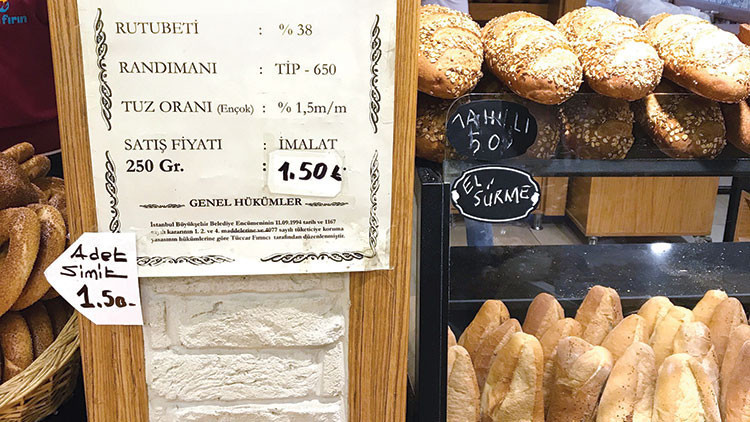 fırın
RUTUBETİ : % 38
RANDIMANI : TİP - 650
TUZ ORANI (Ençok) : % 1,5m/m
SATIŞ FİYATI : İMALAT
250 Gr. : 1.50₺
GENEL HÜKÜMLER
İstanbul Büyükşehir Belediye Encümeninin 11.09.1994 tarih ve 1167
sayılı kararının 1. 2. ve 4. maddelerine ve 4077 sayılı tüketiciye koruma
yasasının hükümlerine göre Tüccar Fırıncı tarafından düzenlenmiştir.
Adet
Simit
1.50.-
TAHILLI
50
EL SÜRME